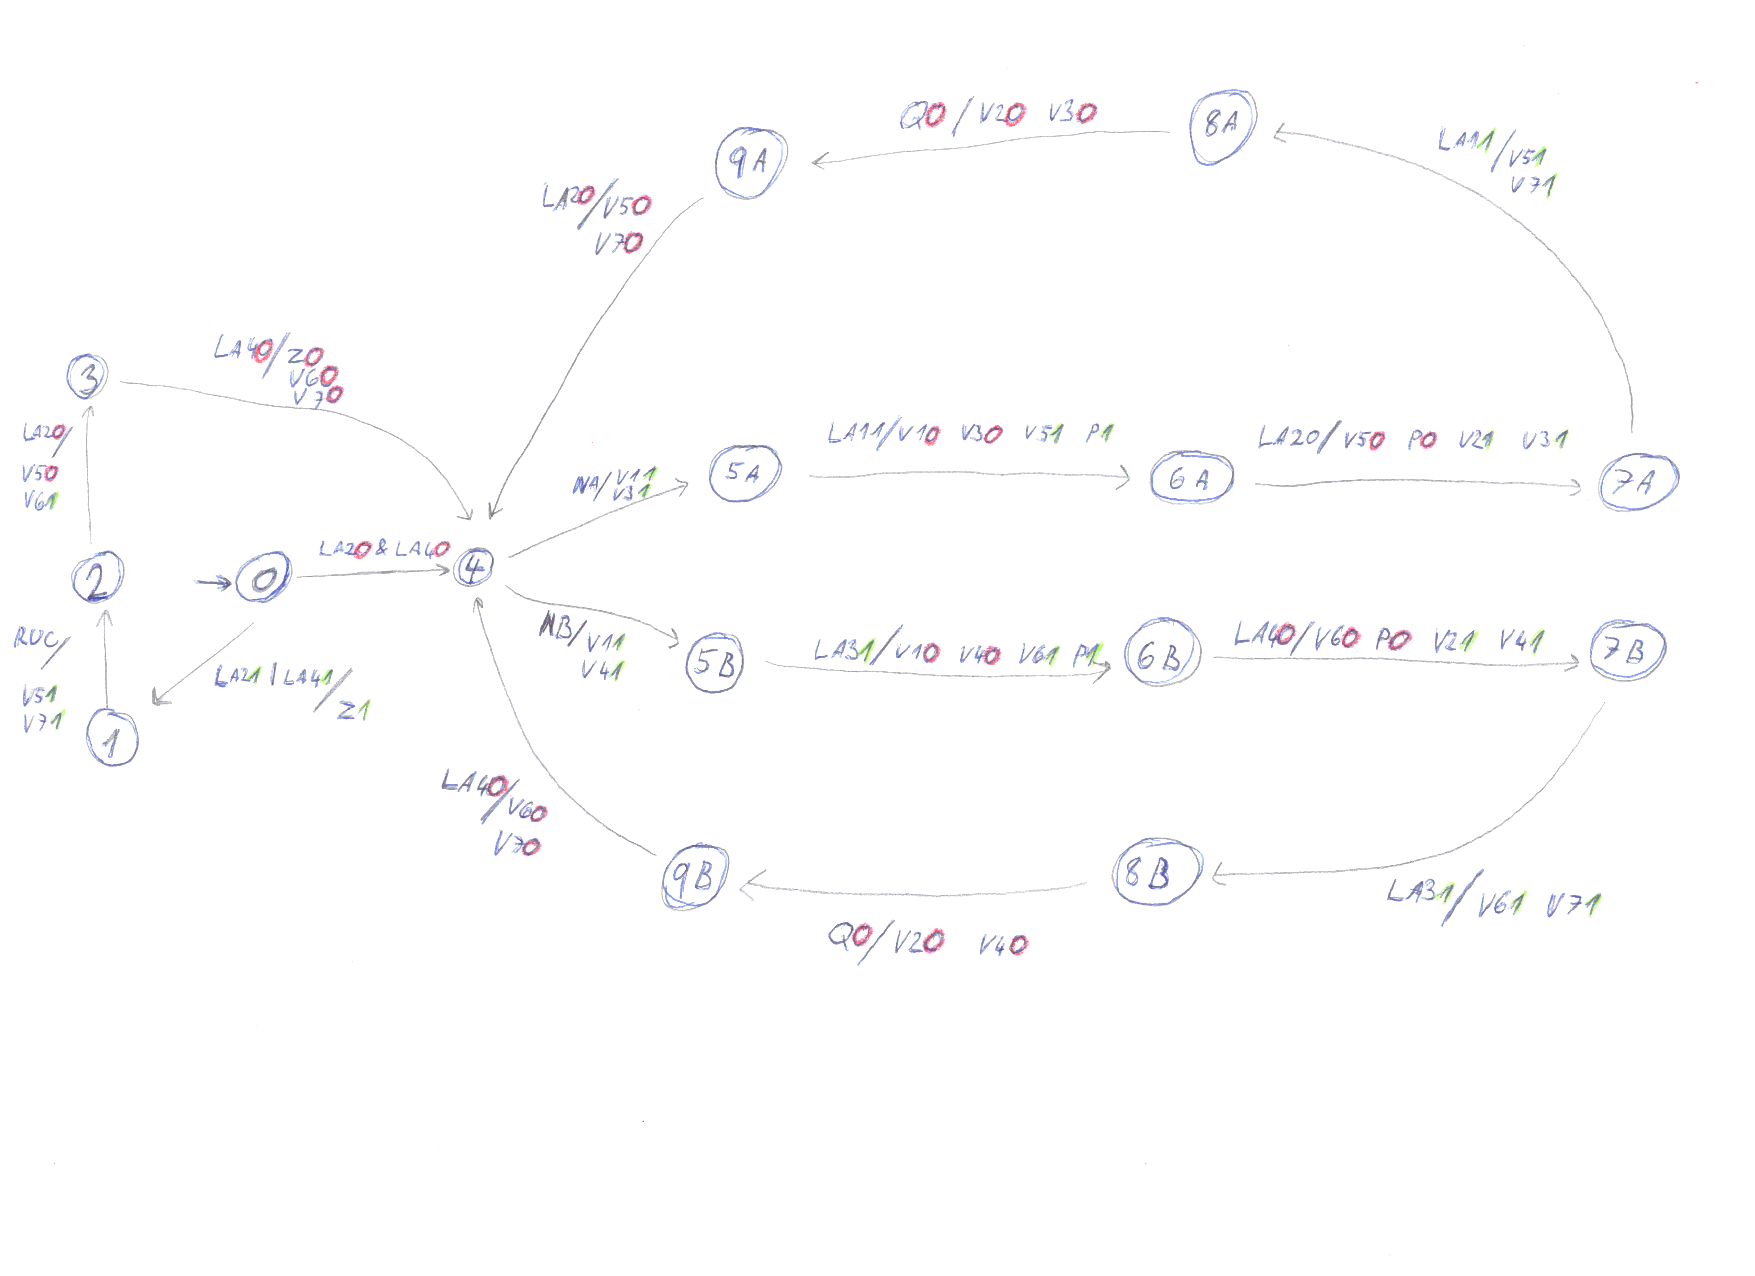 Q0/V20 V30
8A
9A
LA11/V51
V71
LA20/V50
V70
LA40/Z0
V60
V70
3
LA20/
V50
V61
NA/V11
V31
5A
LA11/V10 V30 V51 P1
6A
LA20/V50 P0 V21 V31
7A
2
0
LA20 & LA40
4
RUC/
V51
V71
1
LA21 | LA41/
Z1
NB/V11
V41
5B
LA31/V10 V40 V61 P1
6B
LA40/V60 P0 V21 V41
7B
LA40/V60
V70
9B
8B
LA31/V61 V71
Q0/V20 V40